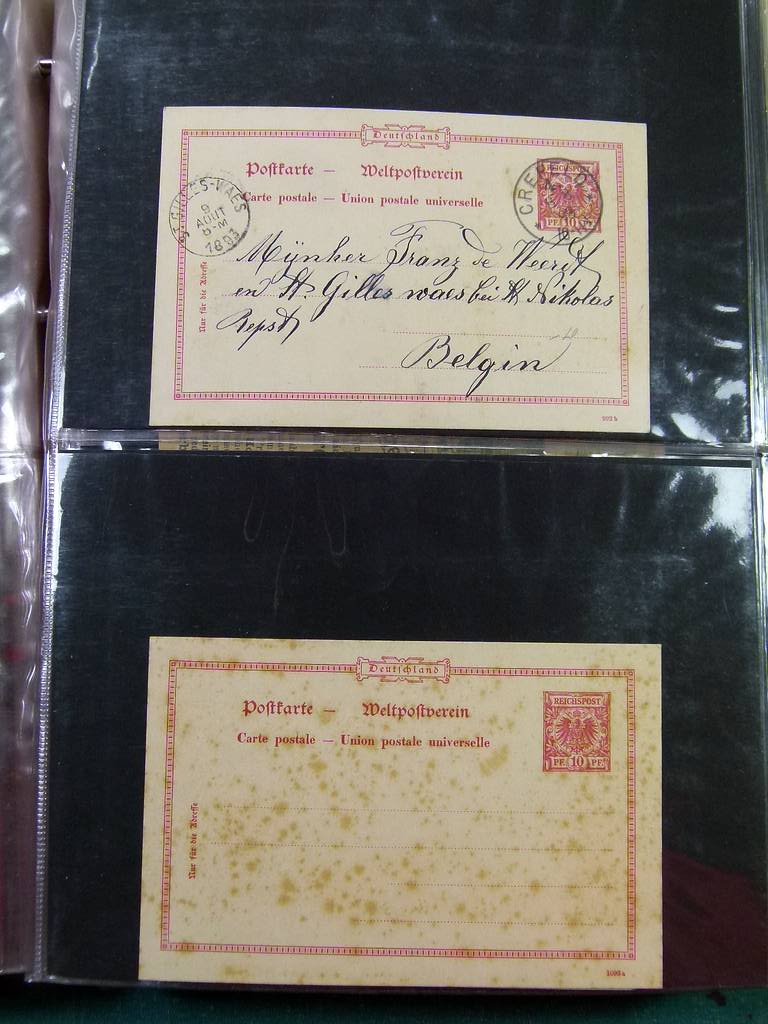 Deutschland
Postkarte — Weltpostverein
Carte postale — Union postale universelle
REICHSPOST
PF. 10 PF.
CREFELD
ST GILLES-WAES
9
AOUT
6-M
1893
Mÿnher Franz de Weerdt
en St. Gilles waes bei St Nikolas
Belgin
Nur für die Adresse
593 b
Deutschland
Postkarte — Weltpostverein
Carte postale — Union postale universelle
REICHSPOST
PF. 10 PF.
Nur für die Adresse
1093 a